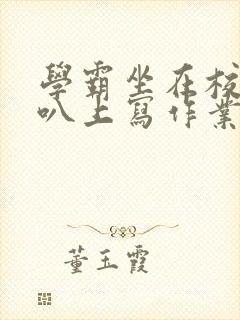 學霸坐在校
叭上寫作業
董玉霞